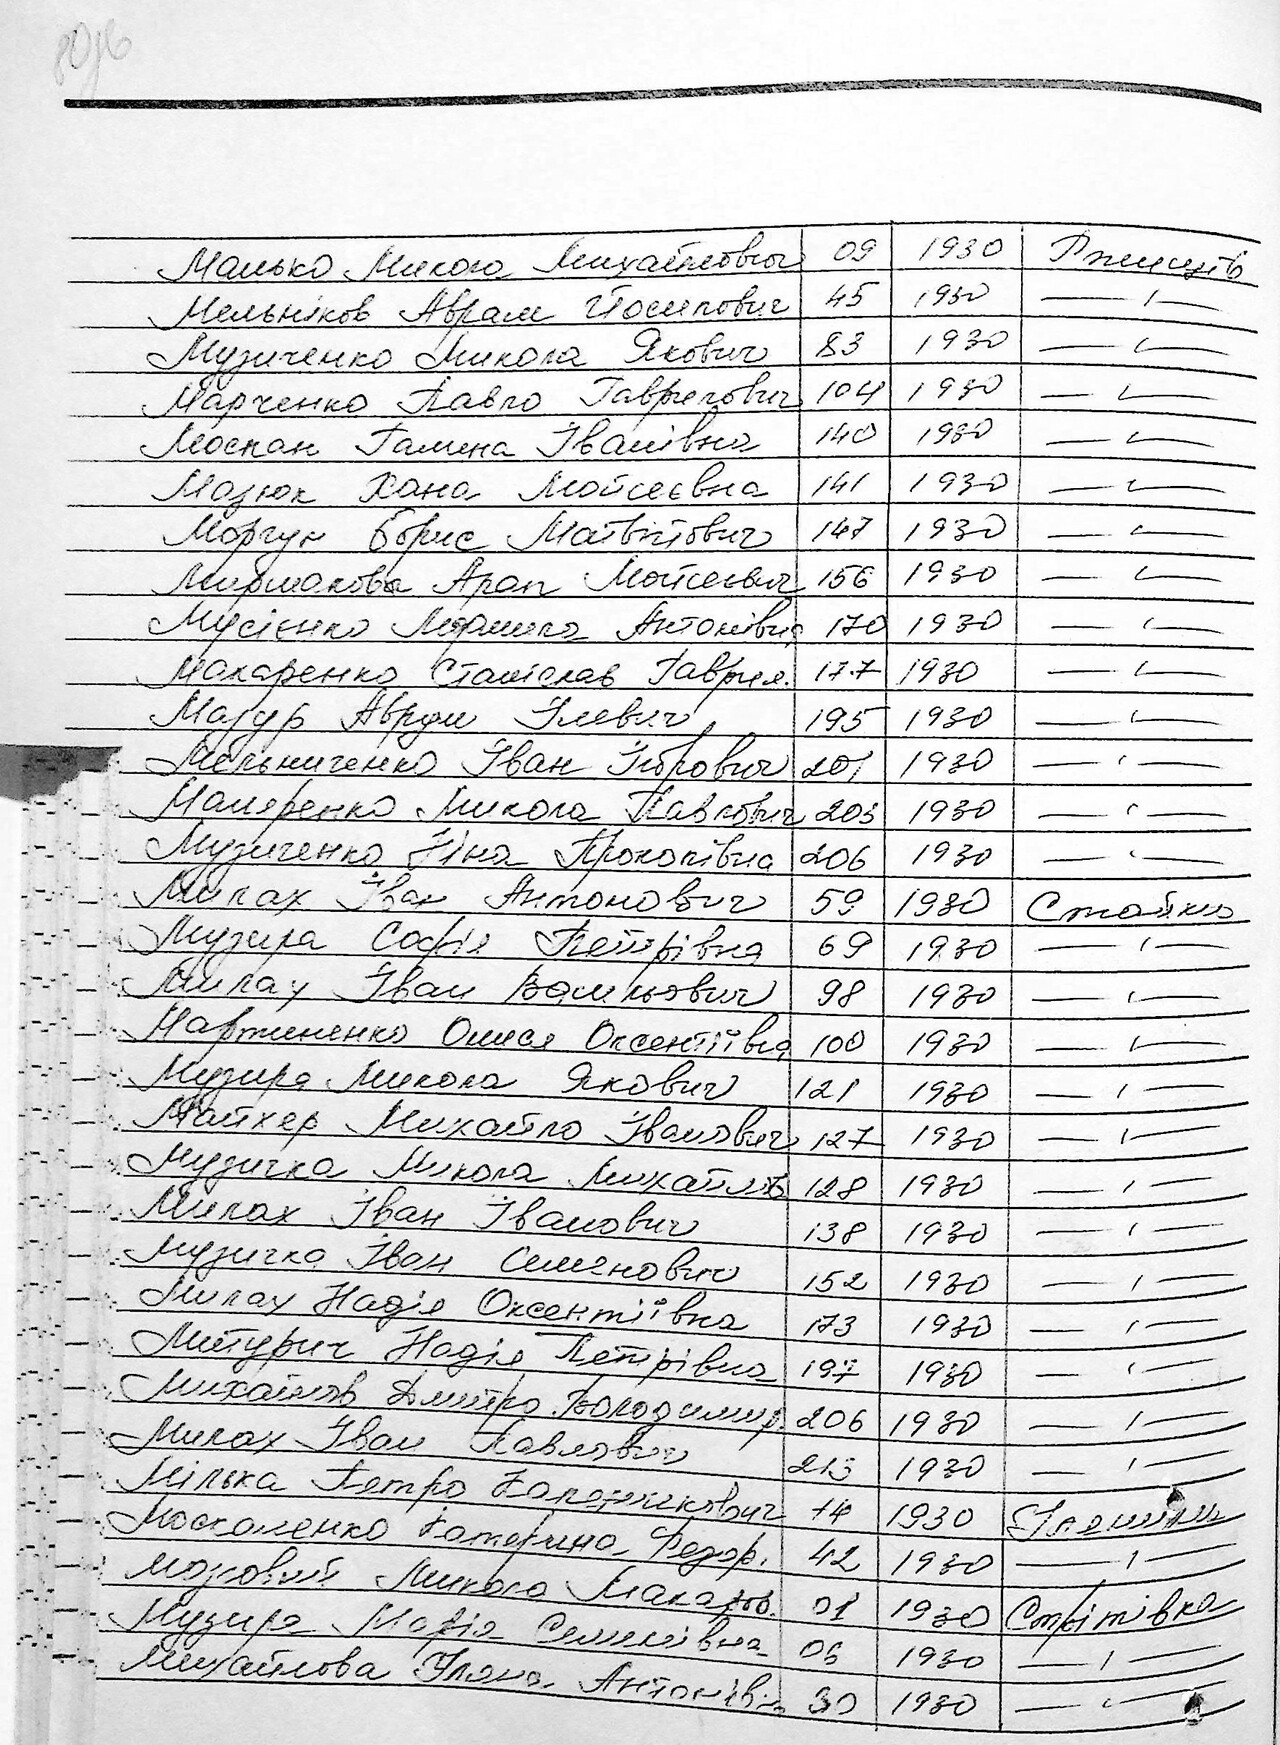 Малько Микола Михайлович 09 1930 Ржищів
Мельніков Аврам Йосипович 45 1930 — " —
Музиченко Микола Якович 83 1930 — " —
Марченко Павло Гаврилович 104 1930 — " —
Моспан Галина Іванівна 140 1930 — " —
Мазюк Хана Мойсеєвна 141 1930 — " —
Моргун Борис Матвійович 147 1930 — " —
Арап Мойсеєвич 156 1930 — " —
Мусієнко Людмила Антонівна 170 1930 — " —
Макаренко Станіслав Гаврил. 177 1930 — " —
Мазур Аврум Ілевич 195 1930 — " —
Мельниченко Іван Ігорович 201 1930 — " —
Микола Павлович 203 1930 — " —
Музиченко Ніна Прокопівна 206 1930 — " —
Милах Іван Антонович 59 1930 Стайки
Музира Софія Петрівна 69 1930 — " —
Милах Іван Васильович 98 1930 — " —
Мартиненко Олися Оксентіївна 100 1930 — " —
Музира Микола Якович 121 1930 — " —
Майхер Михайло Іванович 127 1930 — " —
Музичка Микола Михайлів 128 1930 — " —
Милах Іван Іванович 138 1930 — " —
Музичка Іван Семенович 152 1930 — " —
Милах Надія Оксентіївна 173 1930 — " —
Митурич Надія Петрівна 197 1930 — " —
Михайлов Дмитро Володимир. 206 1930 — " —
Милах Іван Павлович 213 1930 — " —
Мілька Петро 14 1930
Москаленко Катерина Федор. 42 1930 — " —
Мозговий Микола Макаров. 01 1930 Стрітівка
Музира Марія Семенівна 06 1930 — " —
Михайлова Уляна Антонівна 30 1930 — " —